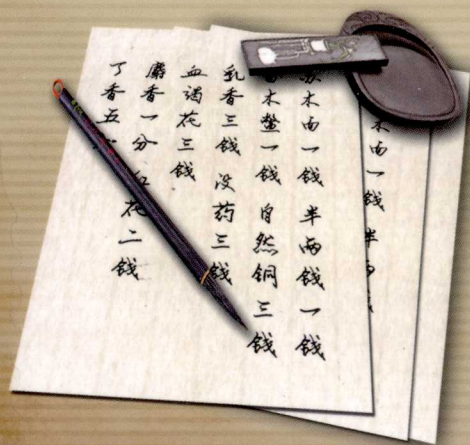 木由一钱 半两钱一钱
木鳖一钱 自然铜三钱
乳香三钱 没药三钱
血谒花三钱
麝香一分 红花二钱
丁香五
木由一钱 半